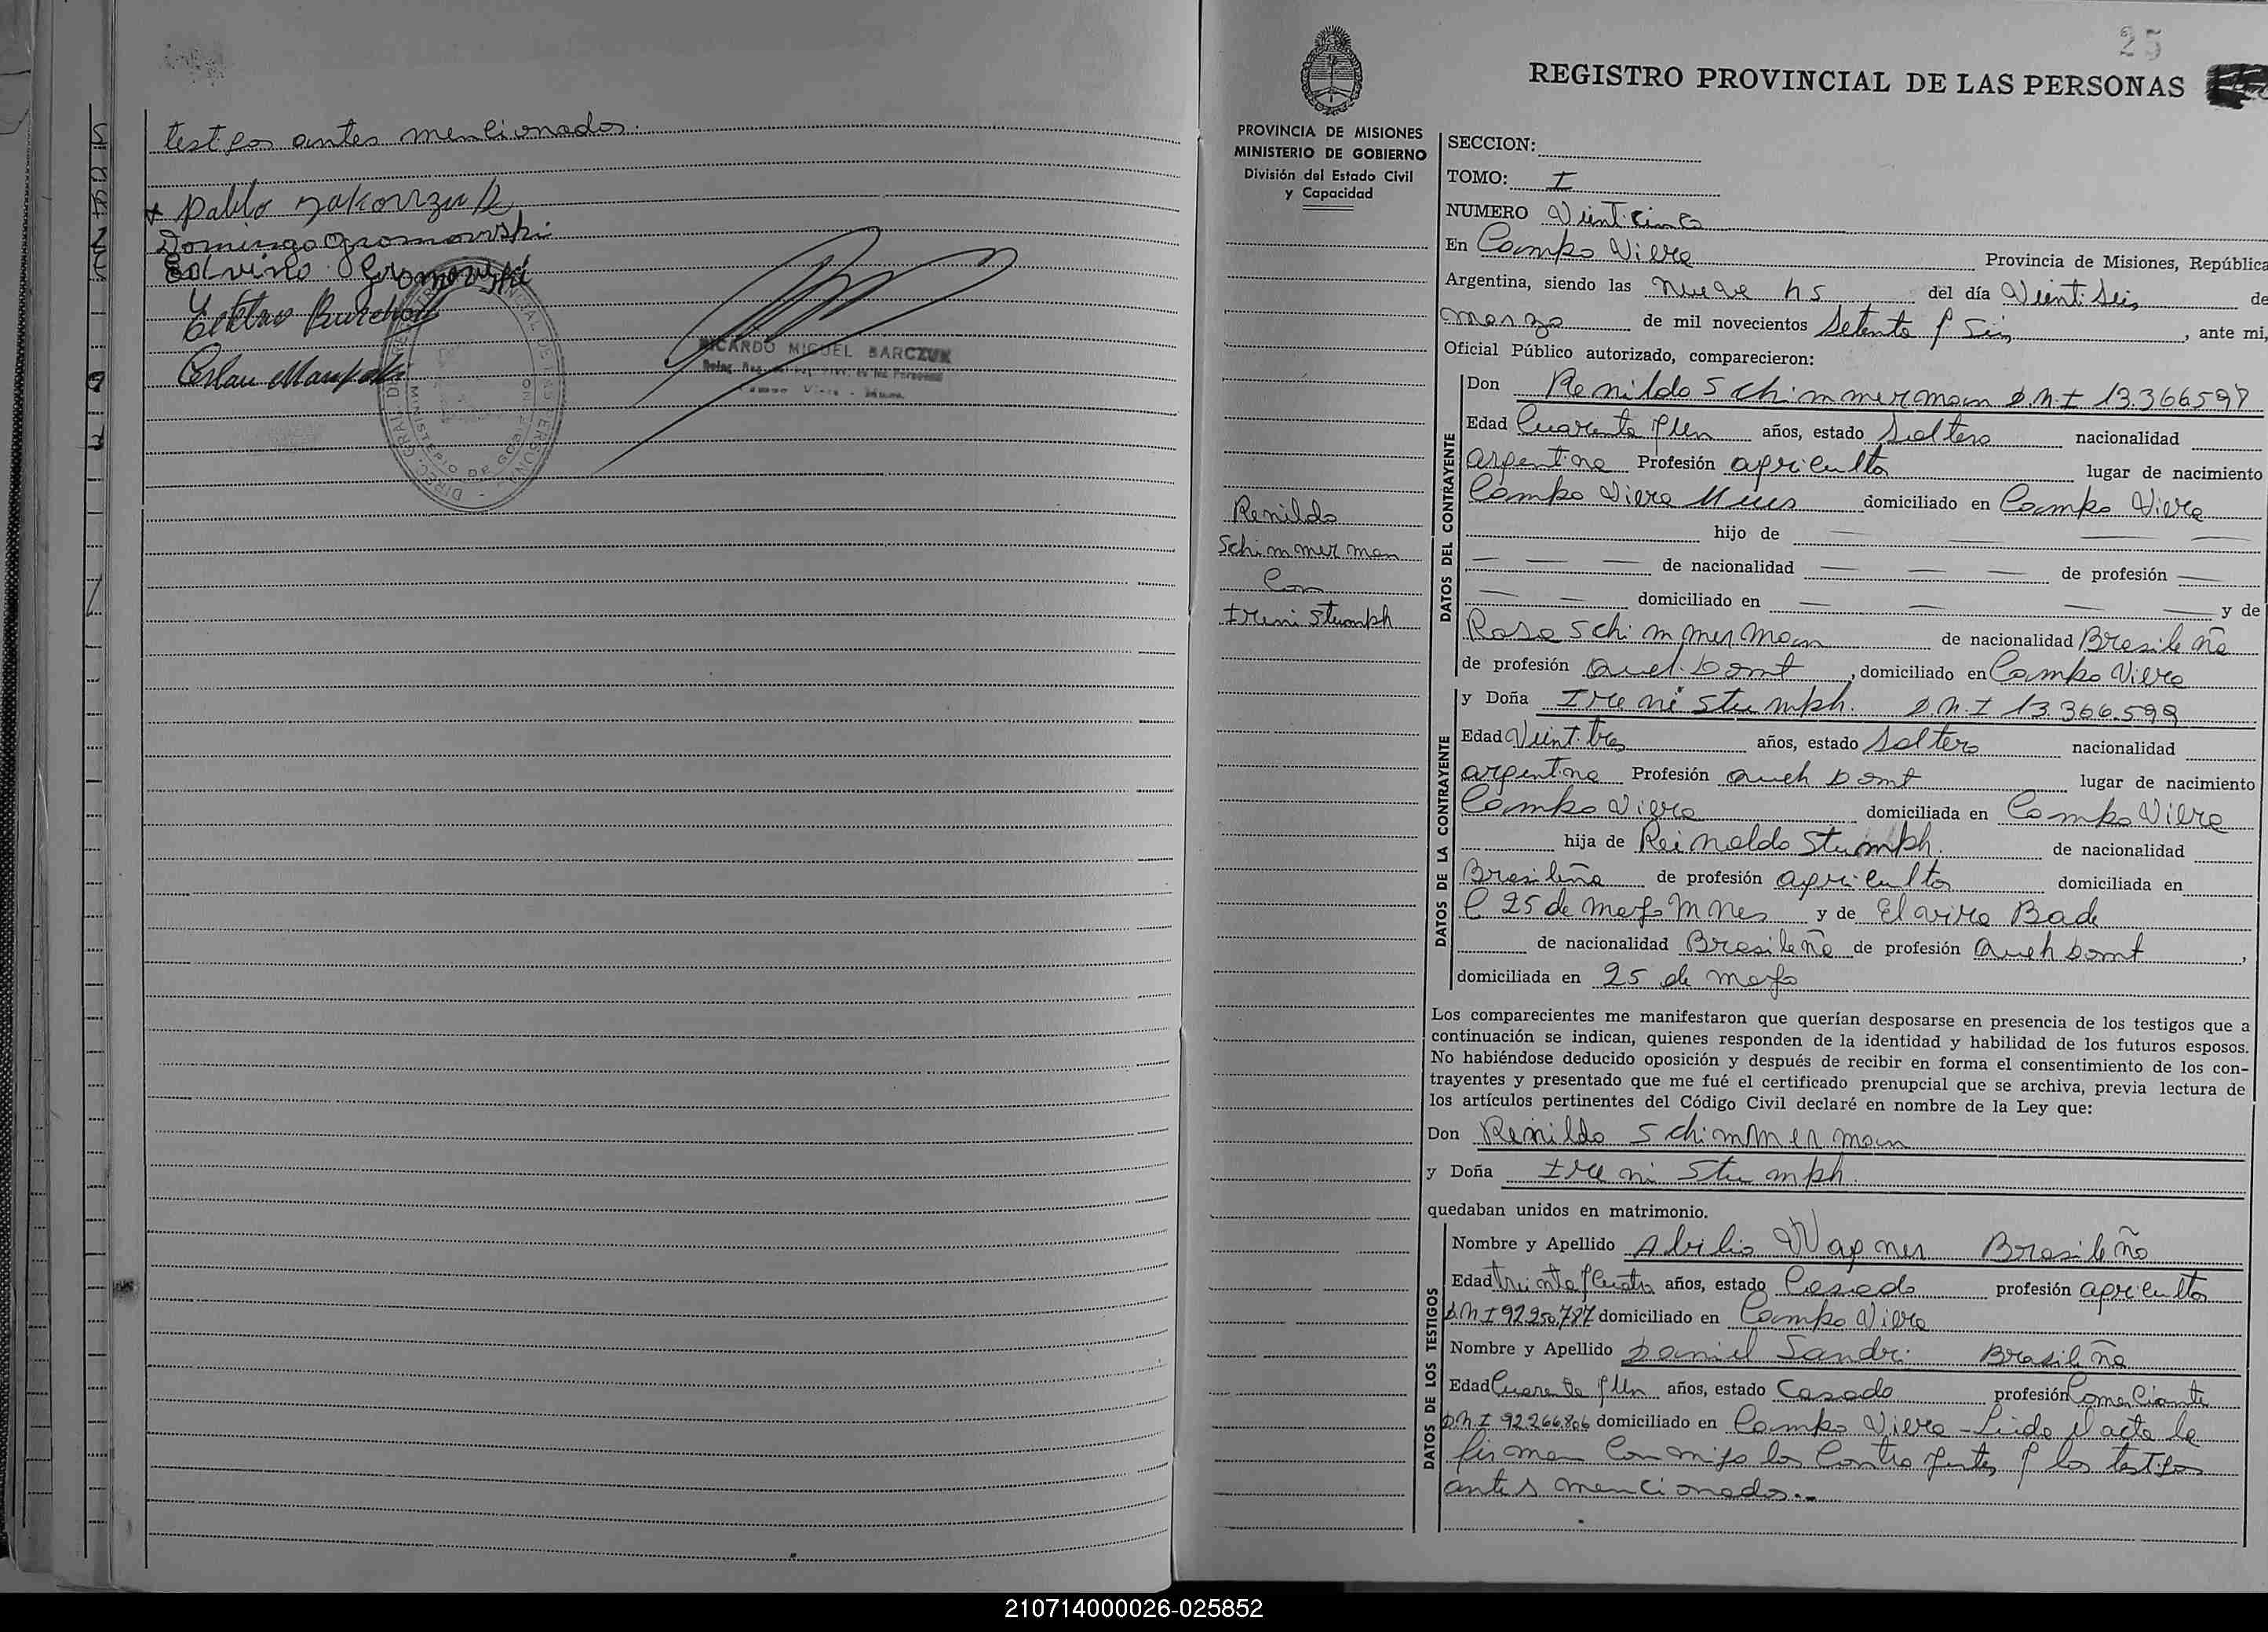 testigos antes mencionados.
Pablo
Domingo Gromowski
Gromowski
RICARDO MIGUEL BARCZUK
25
REGISTRO PROVINCIAL DE LAS PERSONAS
PROVINCIA DE MISIONES
MINISTERIO DE GOBIERNO
División del Estado Civil
y Capacidad
Renildo
Schimmerman
Con
Ireni Stumph
SECCION:
TOMO: I
NUMERO Veinticinco
En Campo Viera Provincia de Misiones, República
Argentina, siendo las nueve hs del día Veintiseis de
marzo de mil novecientos Setenta y Seis, ante mi,
Oficial Público autorizado, comparecieron:
DATOS DEL CONTRAYENTE
Don Renildo Schimmerman D.N.I 13.366598
Edad Cuarenta y Un años, estado Soltero nacionalidad
argentina Profesión agricultor lugar de nacimiento
Campo Viera domiciliado en Campo Viera
hijo de
de nacionalidad de profesión
domiciliado en y de
Rosa Schimmerman de nacionalidad Brasileña
de profesión domiciliado en Campo Viera
DATOS DE LA CONTRAYENTE
y Doña Ireni Stumph. D.N.I 13.366.599
Edad Veintitres años, estado Soltera nacionalidad
argentina Profesión lugar de nacimiento
Campo Viera domiciliada en Campo Viera
hija de Reinoldo Stumph. de nacionalidad
Brasileña de profesión agricultor domiciliada en
25 de mayo Mnes y de Elavira Bade
de nacionalidad Brasileña de profesión
domiciliada en 25 de mayo
Los comparecientes me manifestaron que querían desposarse en presencia de los testigos que a
continuación se indican, quienes responden de la identidad y habilidad de los futuros esposos.
No habiéndose deducido oposición y después de recibir en forma el consentimiento de los con-
trayentes y presentado que me fué el certificado prenupcial que se archiva, previa lectura de
los artículos pertinentes del Código Civil declaré en nombre de la Ley que:
Don Renildo Schimmerman
y Doña Ireni Stumph.
quedaban unidos en matrimonio.
DATOS DE LOS TESTIGOS
Nombre y Apellido Abilio Wagner Brasileño
Edad treinta y Cuatro años, estado Casado profesión agricultor
D.N.I 92.250.787 domiciliado en Campo Viera
Nombre y Apellido Daniel Sandri Brasileña
Edad Cuarenta y Un años, estado Casado profesión Comerciante
D.N.I. 92.266.806 domiciliado en Campo Viera - Leida el acta la
firman Conmigo los Contrayentes y los testigos
antes mencionados.-
210714000026-025852